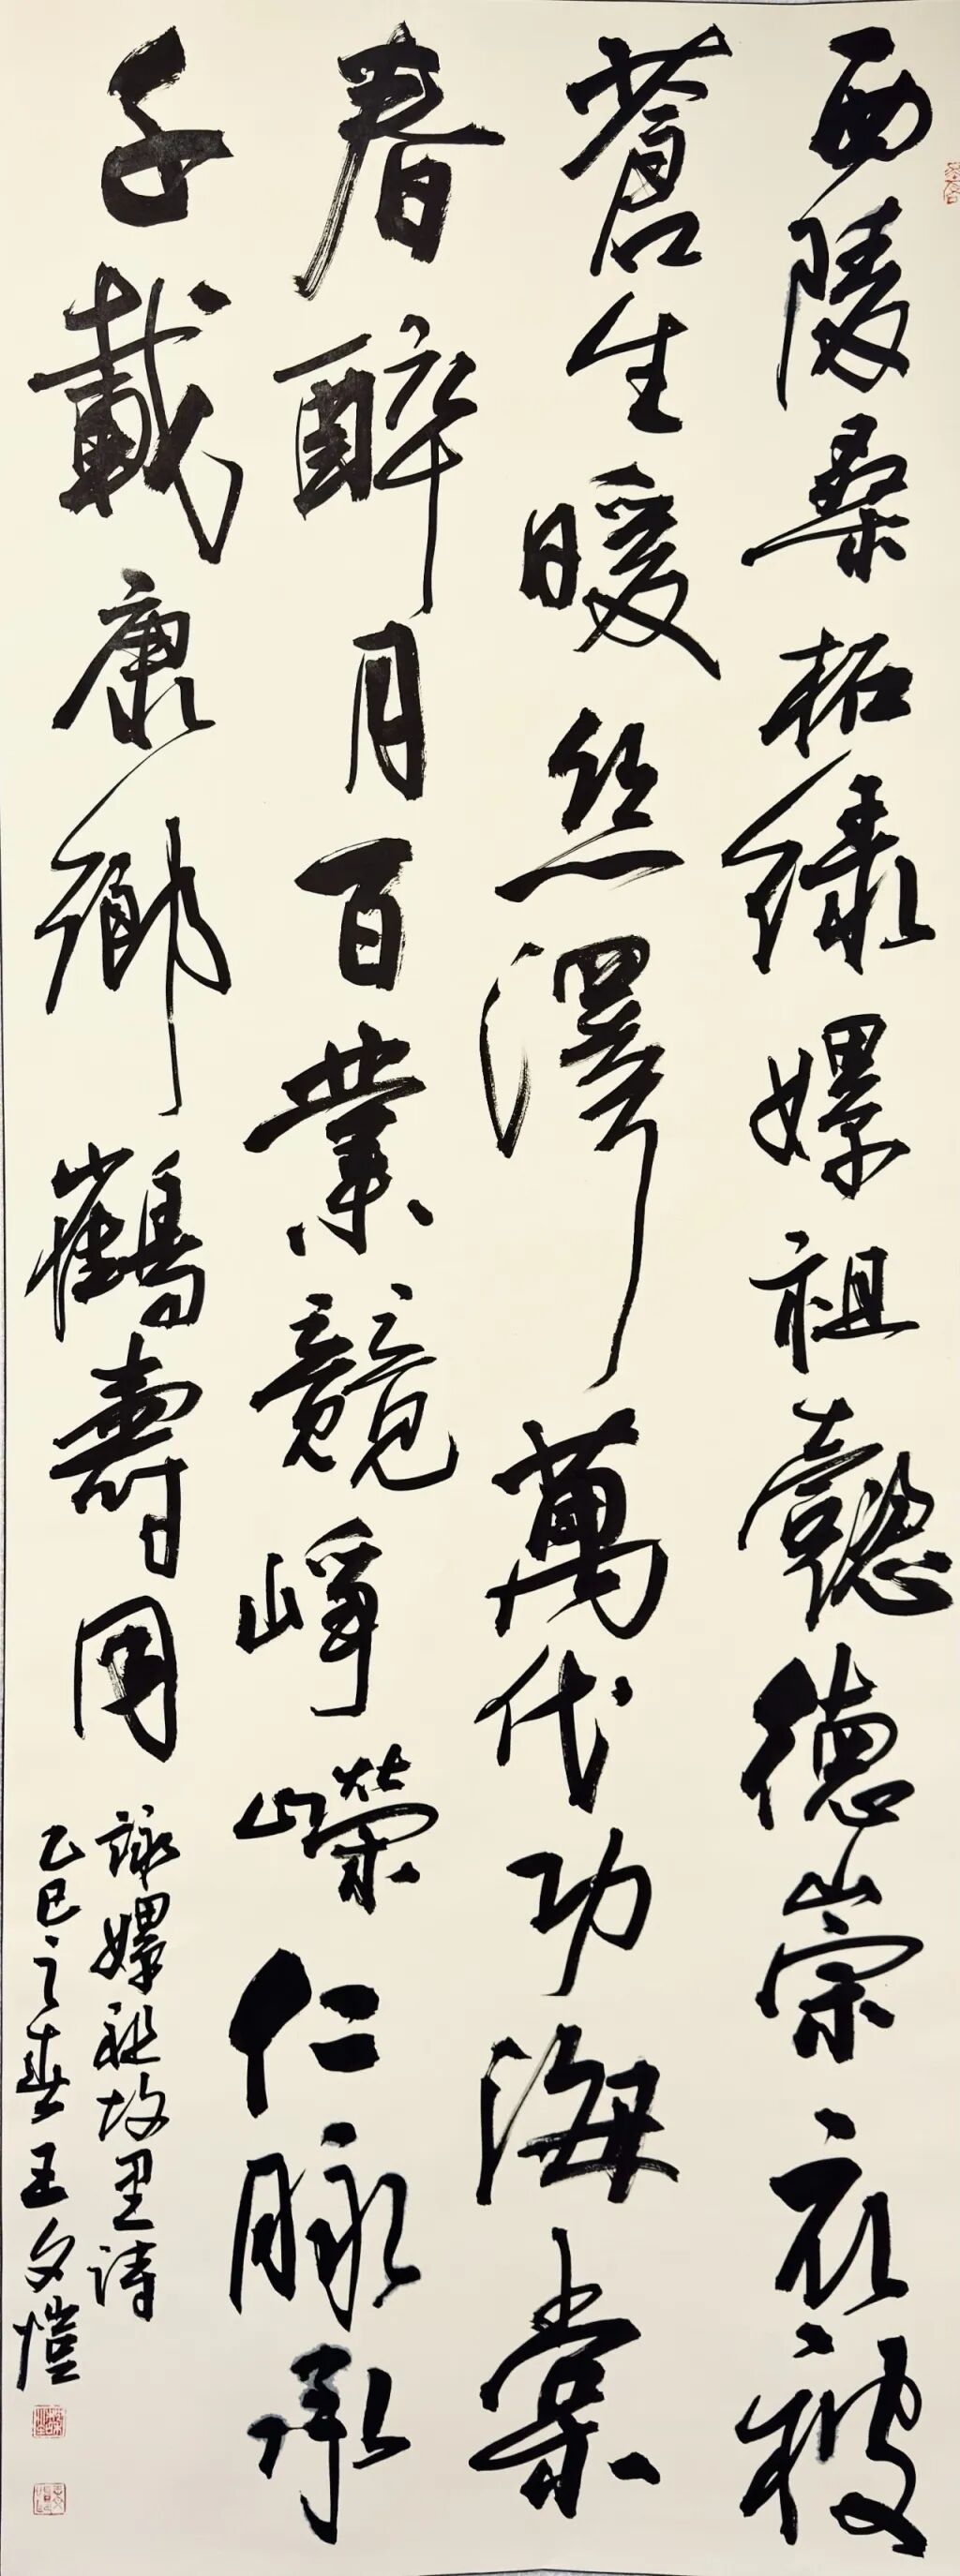 西陵桑柘绿嫘祖懿德崇衣被
蒼生暖丝澤萬代功海棠
春醉月百業競崢嶸仁脉承
千載康鄉鶴壽同
詠嫘祖故里詩
乙巳之春王文愷